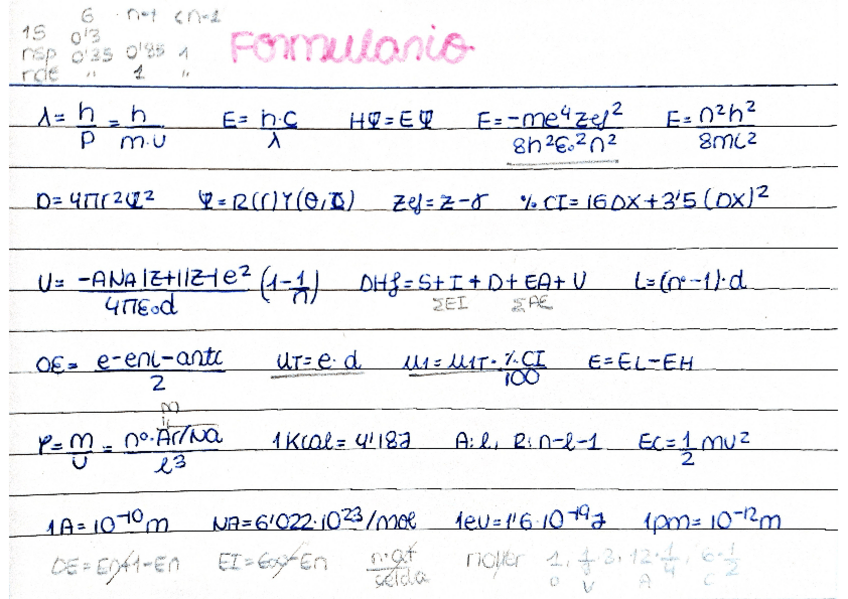 6 n-1 <n-1
1S 0'3
rsp 0'35 0'85 1
rde " 1 "
Formulario
λ = h/P = h/m·v E = h·c/λ HΨ = EΨ E = -me⁴Zef²/8h²ε₀²n² E = n²h²/8mL²
D = 4πr²Ψ² Ψ = R(r)Y(θ,Φ) Zef = Z-γ % CI = 16DX + 3'5(DX)²
U = -ANA|Z+||Z-|e²/4πε₀d (1-1/n) DHf = S + I + D + EA + U L = (nº-1)·d
ΣEI ΣAE
OE = e-enl-antc/2 μT = e·d μ1 = μ1T · %CI/100 E = EL-EH
m
ρ = m/v = nº·Ar/Na/l³ 1Kcal = 4'18J A: l, R: n-l-1 Ec = 1/2 mv²
1A = 10⁻¹⁰m NA = 6'022·10²³/mol 1eV = 1'6·10⁻¹⁹J 1pm = 10⁻¹²m
DE = En+1-En EI = E∞-En n·at/celda 1, 1/8·3, 12·1/4, 6·1/2
O V A C